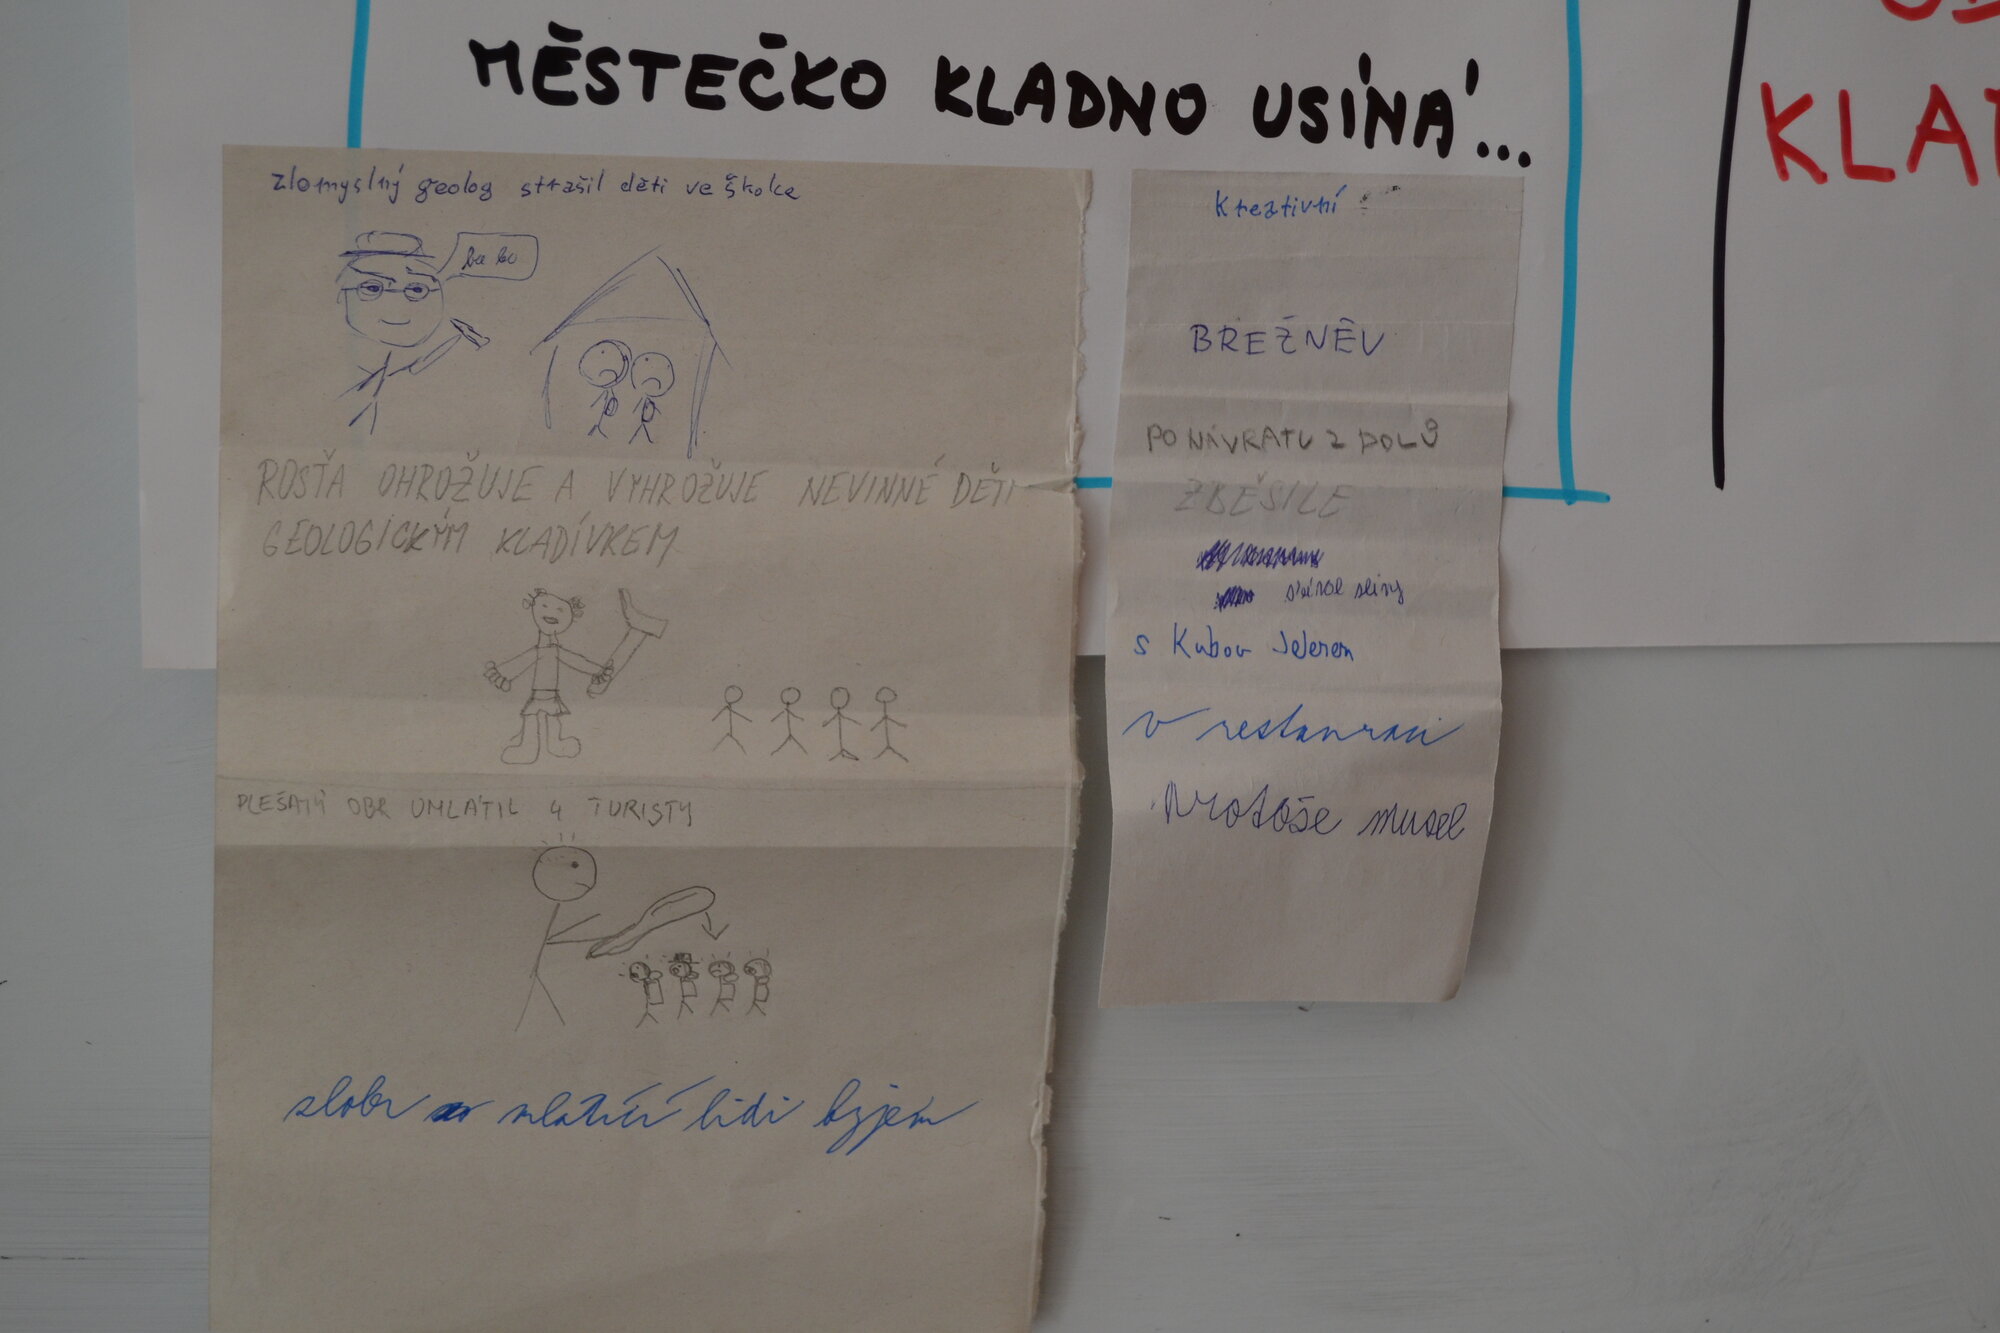 MĚSTEČKO KLADNO USÍNÁ...
KLAD
zlomyslný geolog strašil děti ve školce
bu bu
ROSŤA OHROŽUJE A VYHROŽUJE NEVINNÉ DĚTI
GEOLOGICKÝM KLADÍVKEM
PLEŠATÝ OBR UMLÁTIL 4 TURISTY
zlobr mlátící lidi kyjem
Kreativní
BREŽNĚV
PO NÁVRATU Z DOLŮ
ZBĚSILE
sliny
s Kubou
v restauraci
protože musel